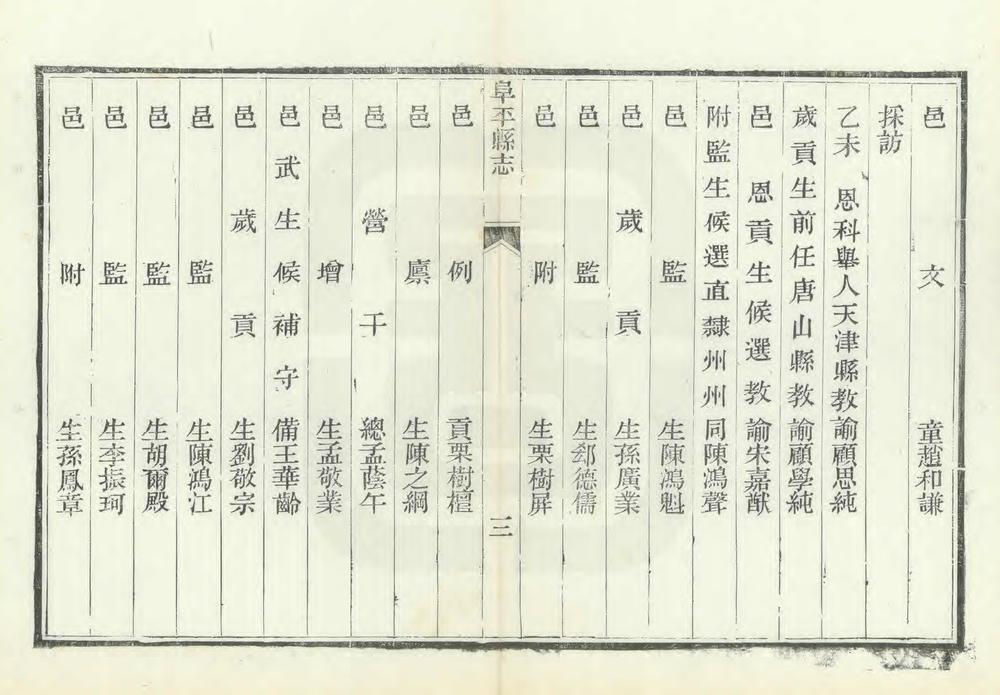 邑文童趙和謙
採訪
乙未恩科舉人天津縣教諭顧思純
歲貢生前任唐山縣教諭顧學純
邑恩貢生候選教諭宋嘉猷
附監生候選直隸州州同陳鴻聲
邑監生陳鴻魁
邑歲貢生孫廣業
邑監生郄德儒
邑附生栗樹屏
阜平縣志
三
邑例貢栗樹檀
邑廩生陳之綱
邑營千總孟蔭午
邑增生孟敬業
邑武生候補守備王華齡
邑歲貢生劉敬宗
邑監生陳鴻江
邑監生胡爾殿
邑監生李振珂
邑附生孫鳳章